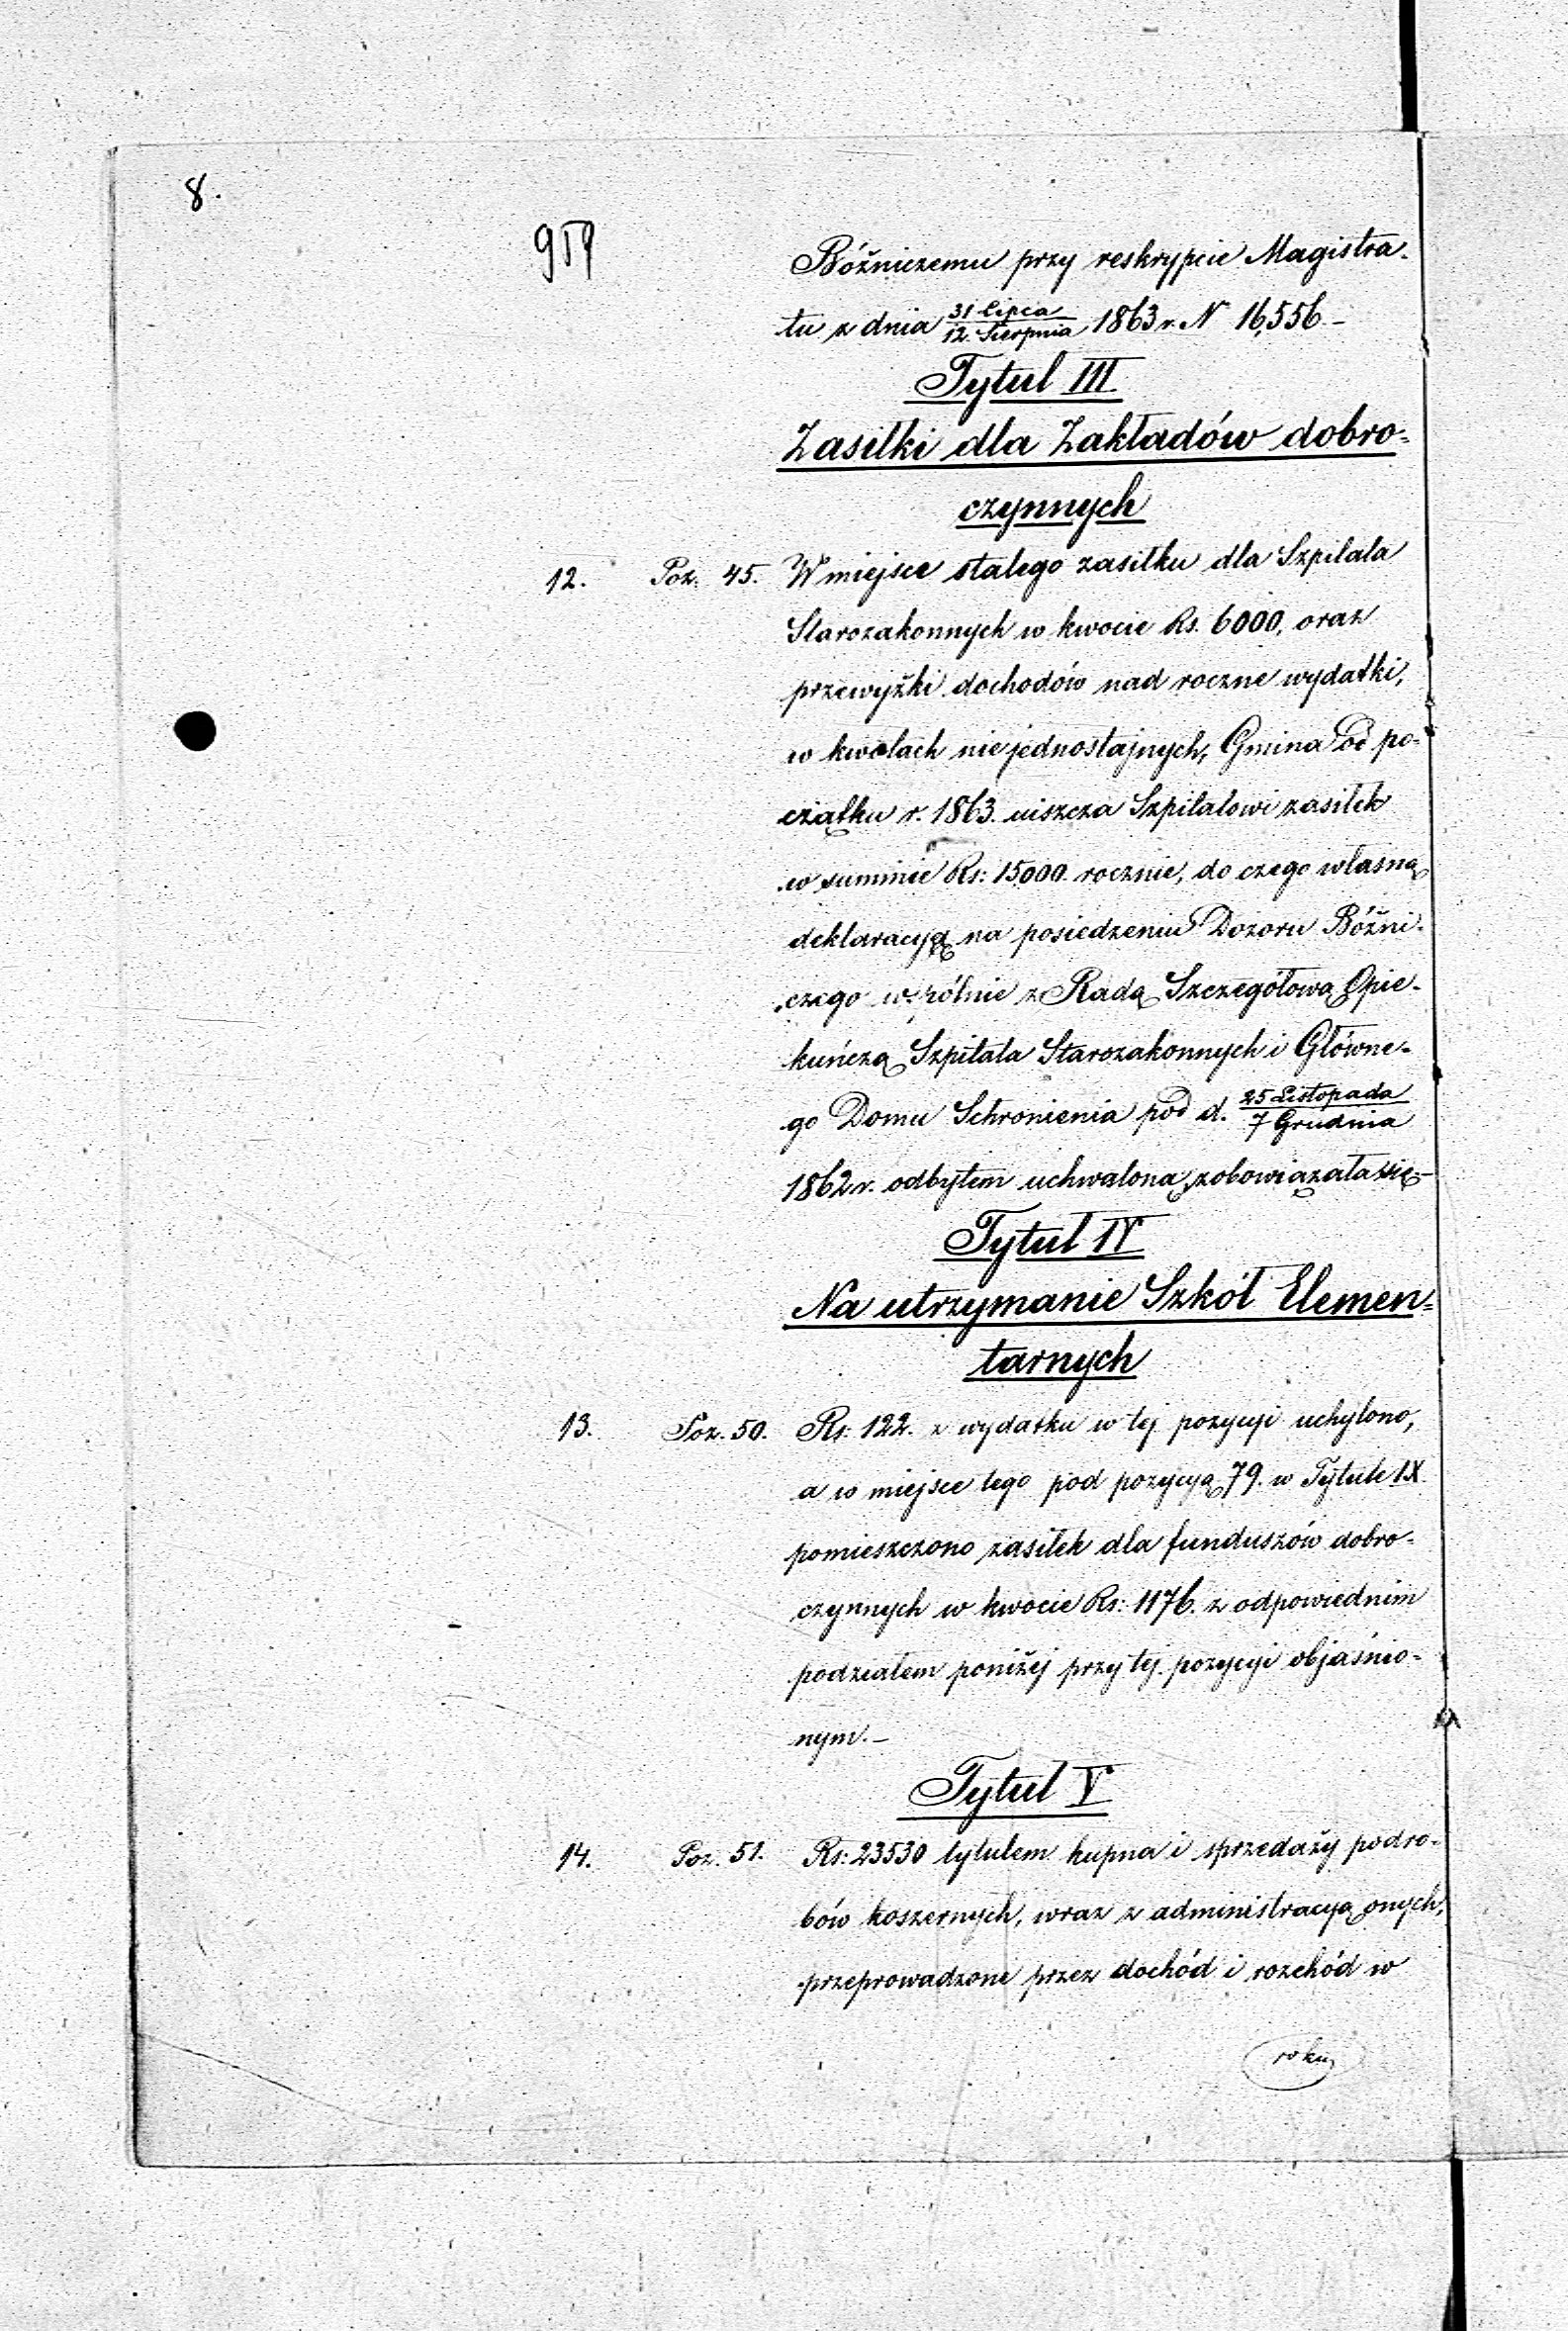 8.
Bóźniczemu przy reskrypcie Magistra-
tu z dnia 31 Lipca / 12. Sierpnia 1863 r. N 16,556.-
Tytuł III
Zasiłki dla Zakładów dobro-
czynnych
12. Poz. 45. W miejsce stałego zasiłku dla Szpitala
Starozakonnych w kwocie Rs. 6000, oraz
przewyżki dochodów nad roczne wydatki,
w kwotach niejednostajnych, Gmina od po-
czątku r. 1863. uiszcza Szpitalowi zasiłek
w summie Rs: 15000. rocznie, do czego własną
deklaracyą na posiedzeniu Dozoru Bóźni-
czego wspólnie z Radą Szczegółową Opie-
kuńczą Szpitala Starozakonnych i Główne-
go Domu Schronienia pod d. 25 Listopada / 7 Grudnia
1862 r. odbytem uchwaloną, zobowiązała się.-
Tytuł IV
Na utrzymanie Szkół Elemen-
tarnych
13. Poz. 50. Rs: 122. z wydatku w tej pozycyi uchylono,
a w miejsce tego pod pozycyą 79. w Tytule IX
pomieszczono zasiłek dla funduszów dobro-
czynnych w kwocie Rs: 1176. z odpowiednim
podziałem poniżej przy tej pozycyi objaśnio-
nym.-
Tytuł V
14. Poz. 51. Rs: 23530 tytułem kupna i sprzedaży podro-
bów koszernych, wraz z administracyą onych,
przeprowadzone przez dochód i rozchód w
roku